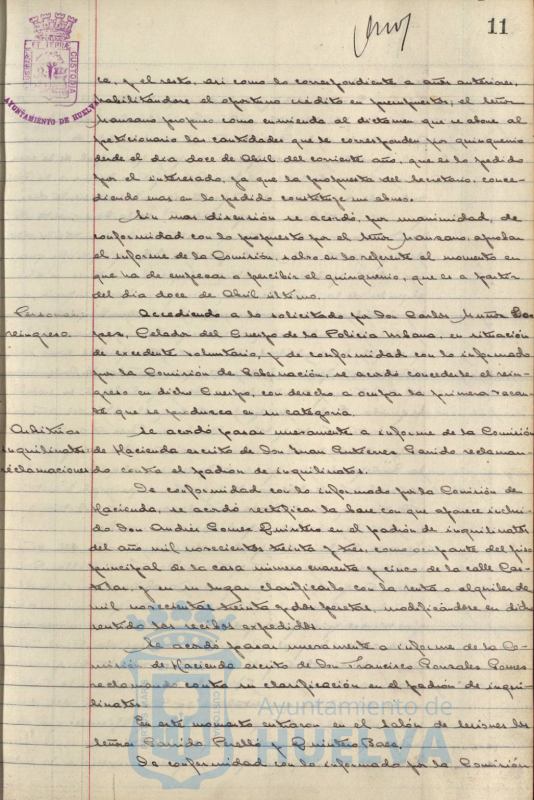 11
AYUNTAMIENTO DE HUELVA
CUSTODIA
ca, y el resto, asi como lo correspondiente a años anteriores,
habilitándose el oportuno crédito en presupuestos; el Señor
Manzano propuso como enmienda al dictamen que se abone al
peticionario las cantidades que le corresponden por quinquenio
desde el dia doce de Abril del corriente año, que es lo pedido
por el interesado, ya que la propuesta del Secretario, conce-
diendo mas en lo pedido constituye un abuso.
Sin mas discusión se acordó, por unanimidad, de
conformidad con lo propuesto por el Señor Manzano, aprobar
el informe de la Comisión, salvo en lo referente al momento en
que ha de empezar a percibir el quinquenio, que es a partir
del dia doce de Abril último.
Personal: Accediendo a lo solicitado por Don Carlos Muñoz Lo-
reingreso pez, Celador del Cuerpo de la Policia Urbana, en situación
de excedente voluntario, y de conformidad con lo informado
por la Comisión de Gobernación, se acordó concederle el rein-
greso en dicho Cuerpo, con derecho a ocupar la primera vacan-
te que se produzca en su categoria.
Arbitrios Se acordó pasar nuevamente a informe de la Comisión
inquilinatos de Hacienda escrito de Don Juan Gutierrez Garrido reclaman-
reclamaciones do contra el padron de inquilinatos.
De conformidad con lo informado por la Comisión de
Hacienda, se acordó rectificar la base con que aparece inclui-
do Don Andrés Gomez Quintero en el padrón de inquilinatos
del año mil novecientos treinta y tres, como ocupante del piso
principal de la casa número cuarenta y cinco de la calle Cas-
telar, y en su lugar clasificarlo con la renta o alquiler de
mil novecientas treinta y dos pesetas, modificándose en dicho
sentido los recibos expedidos.
Se acordó pasar nuevamente a informe de la Co-
misión de Hacienda escrito de Don Francisco Gonzalez Gomez
reclamando contra su clasificación en el padrón de inqui-
linatos.
En este momento entraron en el Salón de Sesiones los
Señores Garrido Perelló y Quintero Baez.
De conformidad con lo informado por la Comisión
Ayuntamiento de
HUELVA